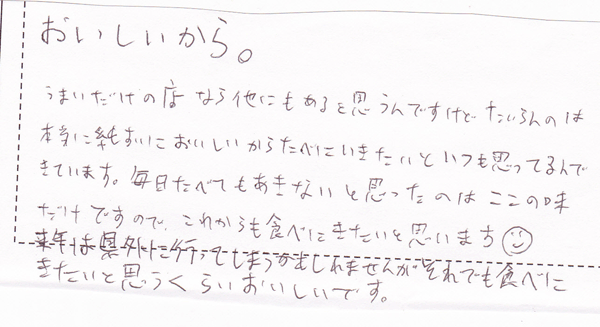 おいしいから。
うまいだけの店なら他にもあると思うんですけど たいらんのは
本当に純すいにおいしいからたべにいきたいといつも思ってるんで
きています。毎日たべてもあきないと思ったのはここの味
だけですので、これからも食べにきたいと思います
来年は県外に行ってしまうかもしれませんがそれでも食べに
きたいと思うくらいおいしいです。